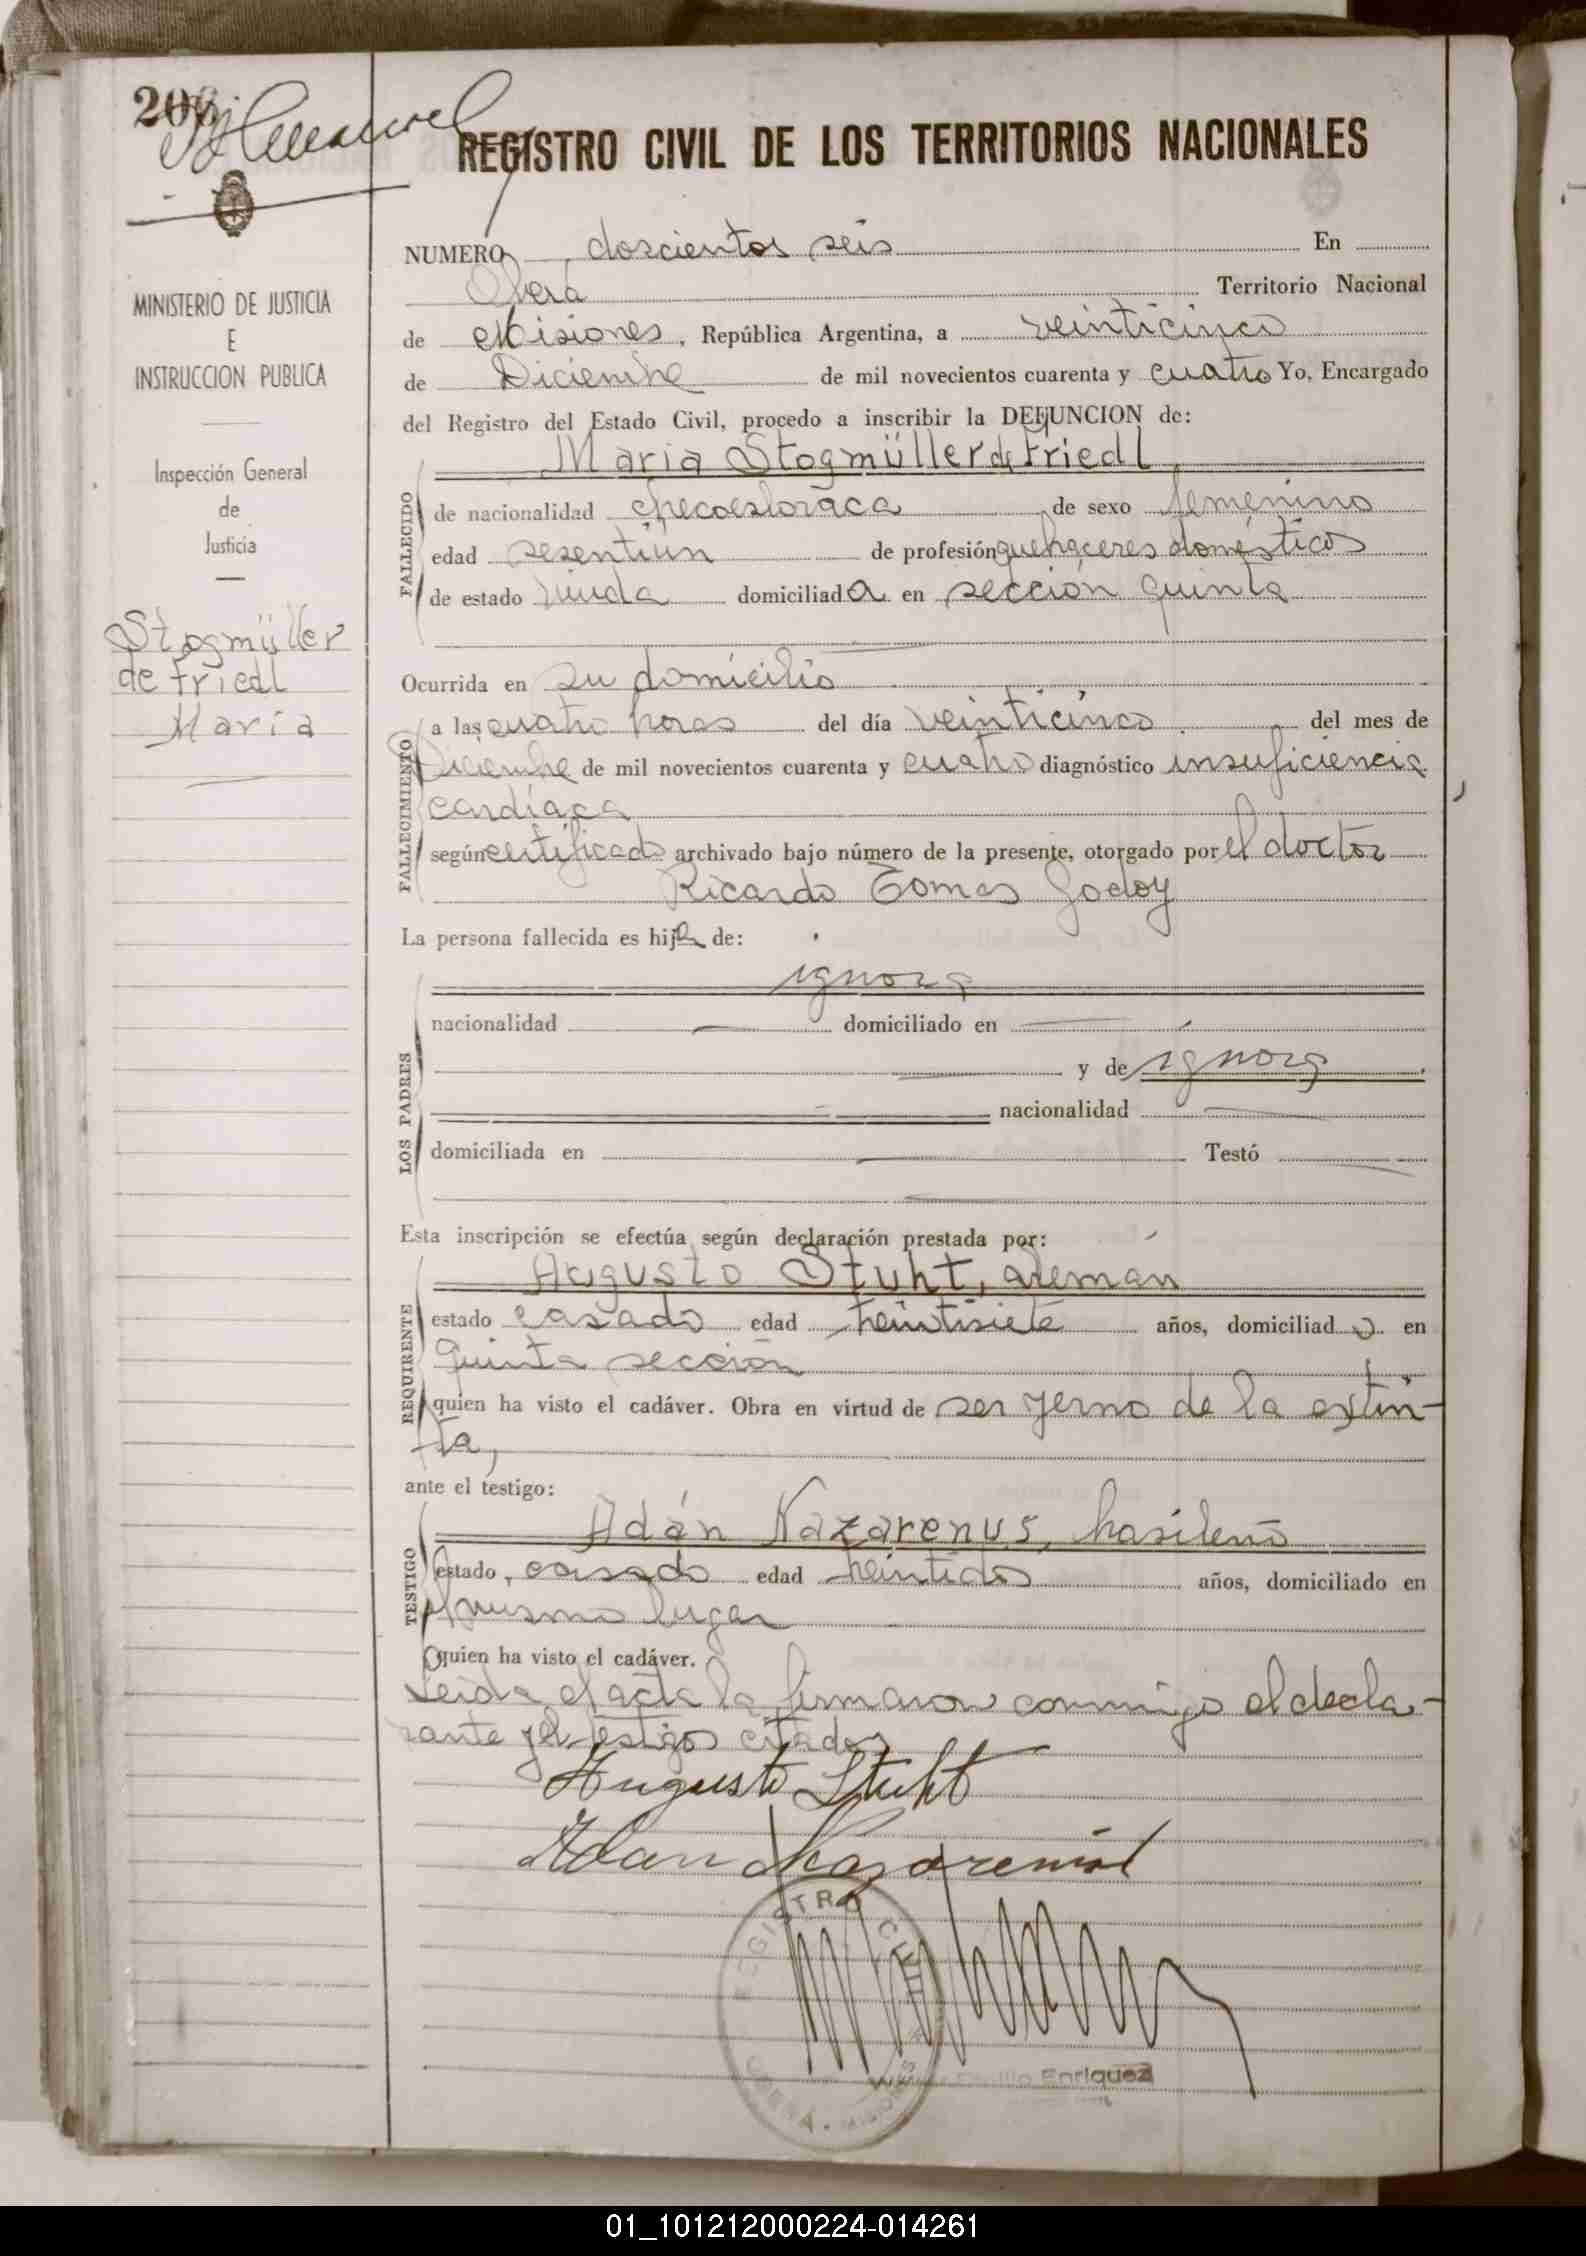 206
REGISTRO CIVIL DE LOS TERRITORIOS NACIONALES
MINISTERIO DE JUSTICIA
E
INSTRUCCION PUBLICA
Inspección General
de
Justicia
Stogmüller
de Friedl
Maria
NUMERO doscientos seis En
Oberá Territorio Nacional
de Misiones, República Argentina, a veinticinco
de Diciembre de mil novecientos cuarenta y cuatro Yo, Encargado
del Registro del Estado Civil, procedo a inscribir la DEFUNCION de:
Maria Stogmüller de Friedl,
FALLECIDO
de nacionalidad checoeslovaca de sexo femenino
edad sesentiún de profesión quehaceres domésticos
de estado viuda domiciliada en sección quinta
Ocurrida en su domicilio
FALLECIMIENTO
a las cuatro horas del día veinticinco del mes de
Diciembre de mil novecientos cuarenta y cuatro diagnóstico insuficiencia
cardíaca
según certificado archivado bajo número de la presente, otorgado por el doctor
Ricardo Tomas Godoy
La persona fallecida es hija de:
LOS PADRES
ignora
nacionalidad domiciliado en
y de ignora
nacionalidad
domiciliada en Testó
Esta inscripción se efectúa según declaración prestada por:
REQUIRENTE
Augusto Stuht, aleman
estado casado edad treintisiete años, domiciliado en
quinta sección
quien ha visto el cadáver. Obra en virtud de ser yerno de la extin-
ta,
ante el testigo:
TESTIGO
Adán Nazarenus, brasileño
estado, casado edad treintidos años, domiciliado en
el mismo lugar
quien ha visto el cadáver.
Leida el acta la firmaron conmigo el decla-
rante y el testigo citados
Augusto Stuht
Adan Nazarenus
REGISTRO CIVIL
OBERA - MISIONES
Enriquez
01_101212000224-014261